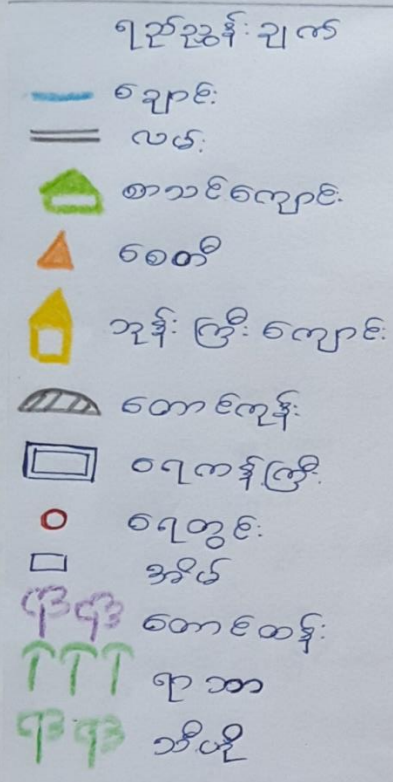 ရည်ညွှန်းချက်
ချောင်း
လမ်း
စာသင်ကျောင်း
စေတီ
ဘုန်းကြီးကျောင်း
တောင်ကုန်း
ရေကန်ကြီး
ရေတွင်း
အိမ်
တောင်ထန်း
ရာဘာ
သီဟိုဠ်